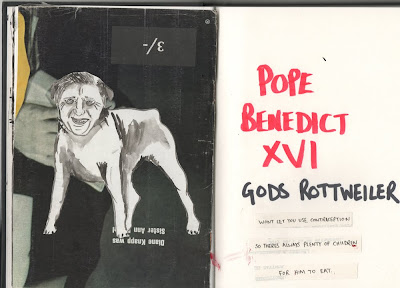 3/-
Diane Knapp was
Sister Ann
POPE
BENEDICT
XVI
GODS ROTTWEILER
WONT LET YOU USE CONTRACEPTION
SO THERES ALWAYS PLENTY OF CHILDREN
FOR HIM TO EAT.